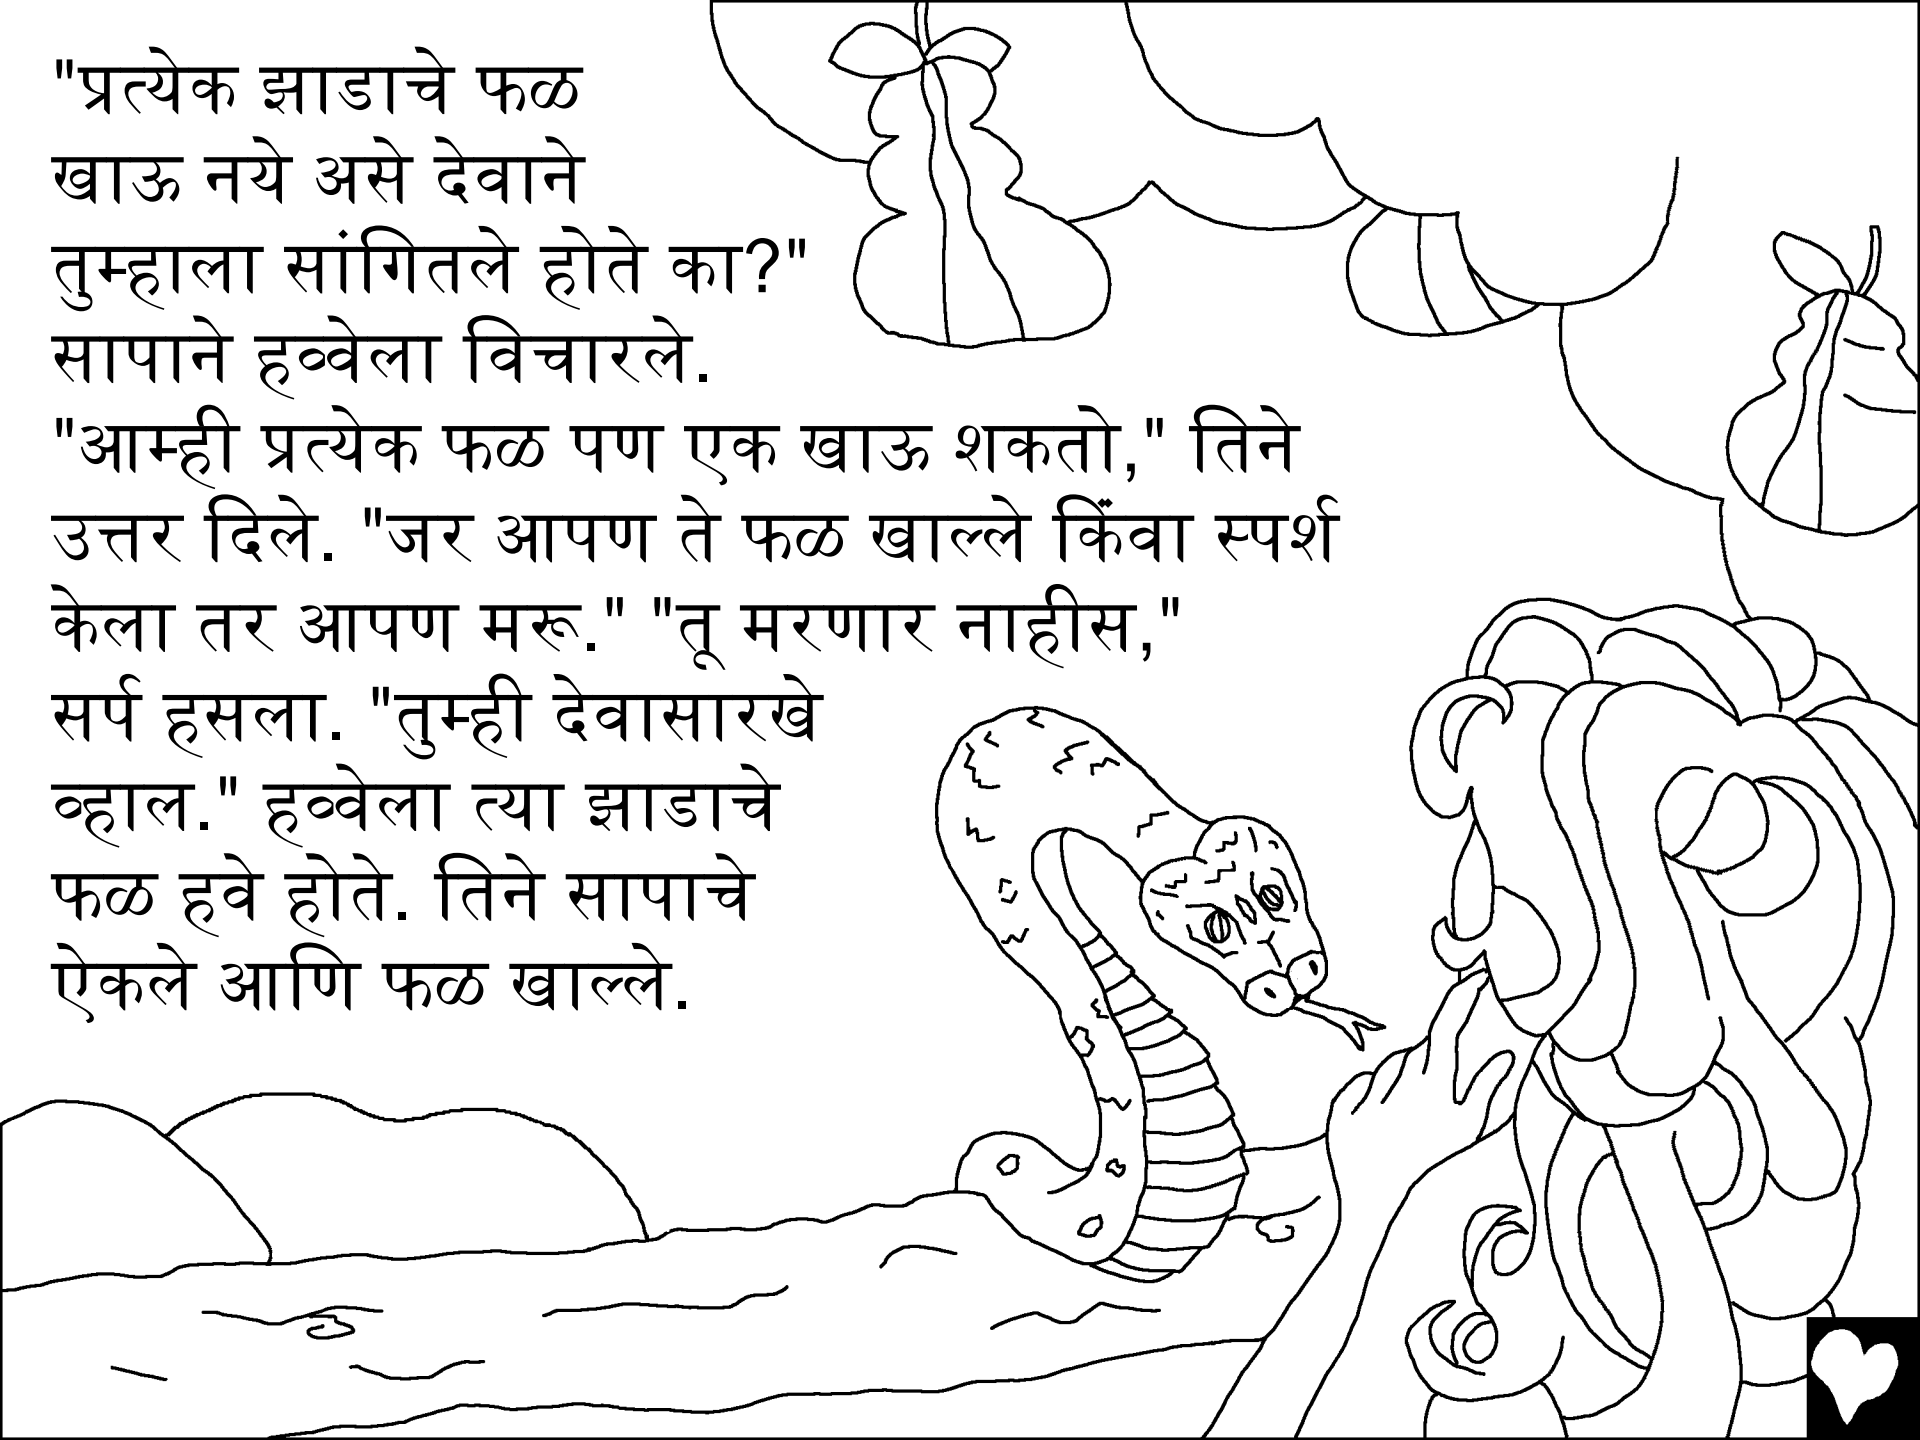 "प्रत्येक झाडाचे फळ
खाऊ नये असे देवाने
तुम्हाला सांगितले होते का?"
सापाने हव्वेला विचारले.
"आम्ही प्रत्येक फळ पण एक खाऊ शकतो," तिने
उत्तर दिले. "जर आपण ते फळ खाल्ले किंवा स्पर्श
केला तर आपण मरू." "तू मरणार नाहीस,"
सर्प हसला. "तुम्ही देवासारखे
व्हाल." हव्वेला त्या झाडाचे
फळ हवे होते. तिने सापाचे
ऐकले आणि फळ खाल्ले.